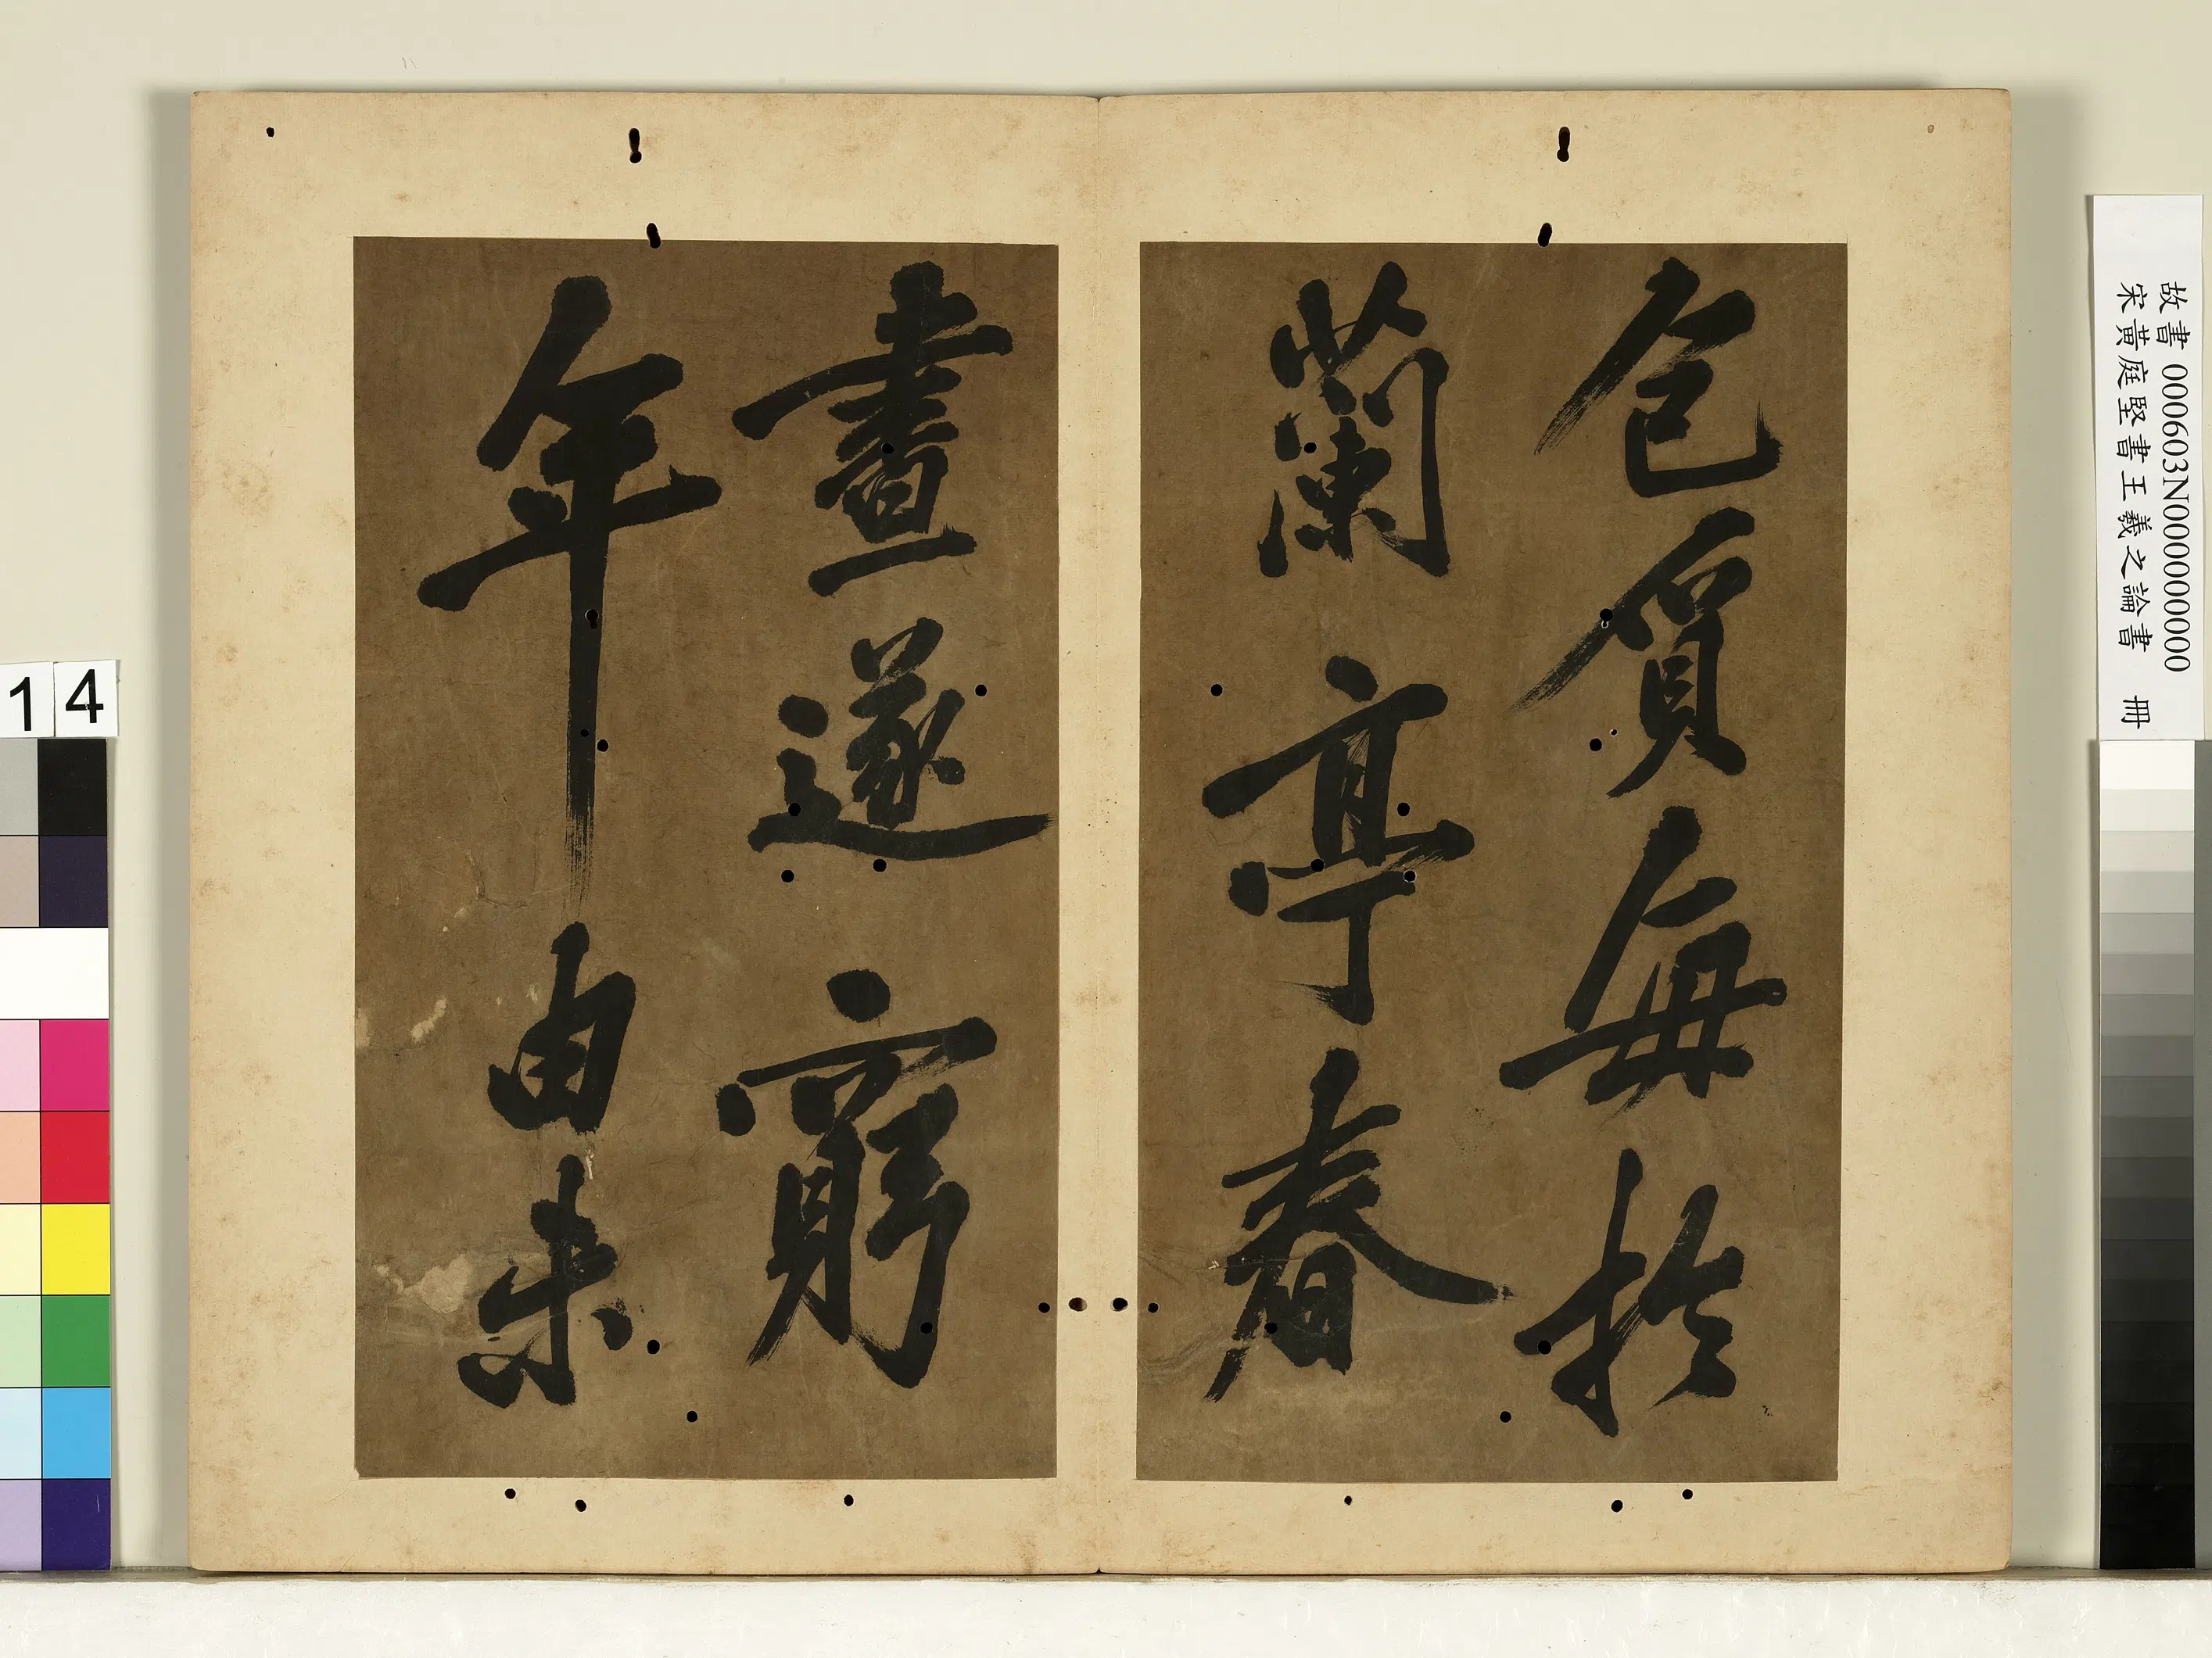 包質每於
蘭亭春
晝遂窮
年由未
故書000603N000000000
宋黃庭堅書王羲之論書 冊
14